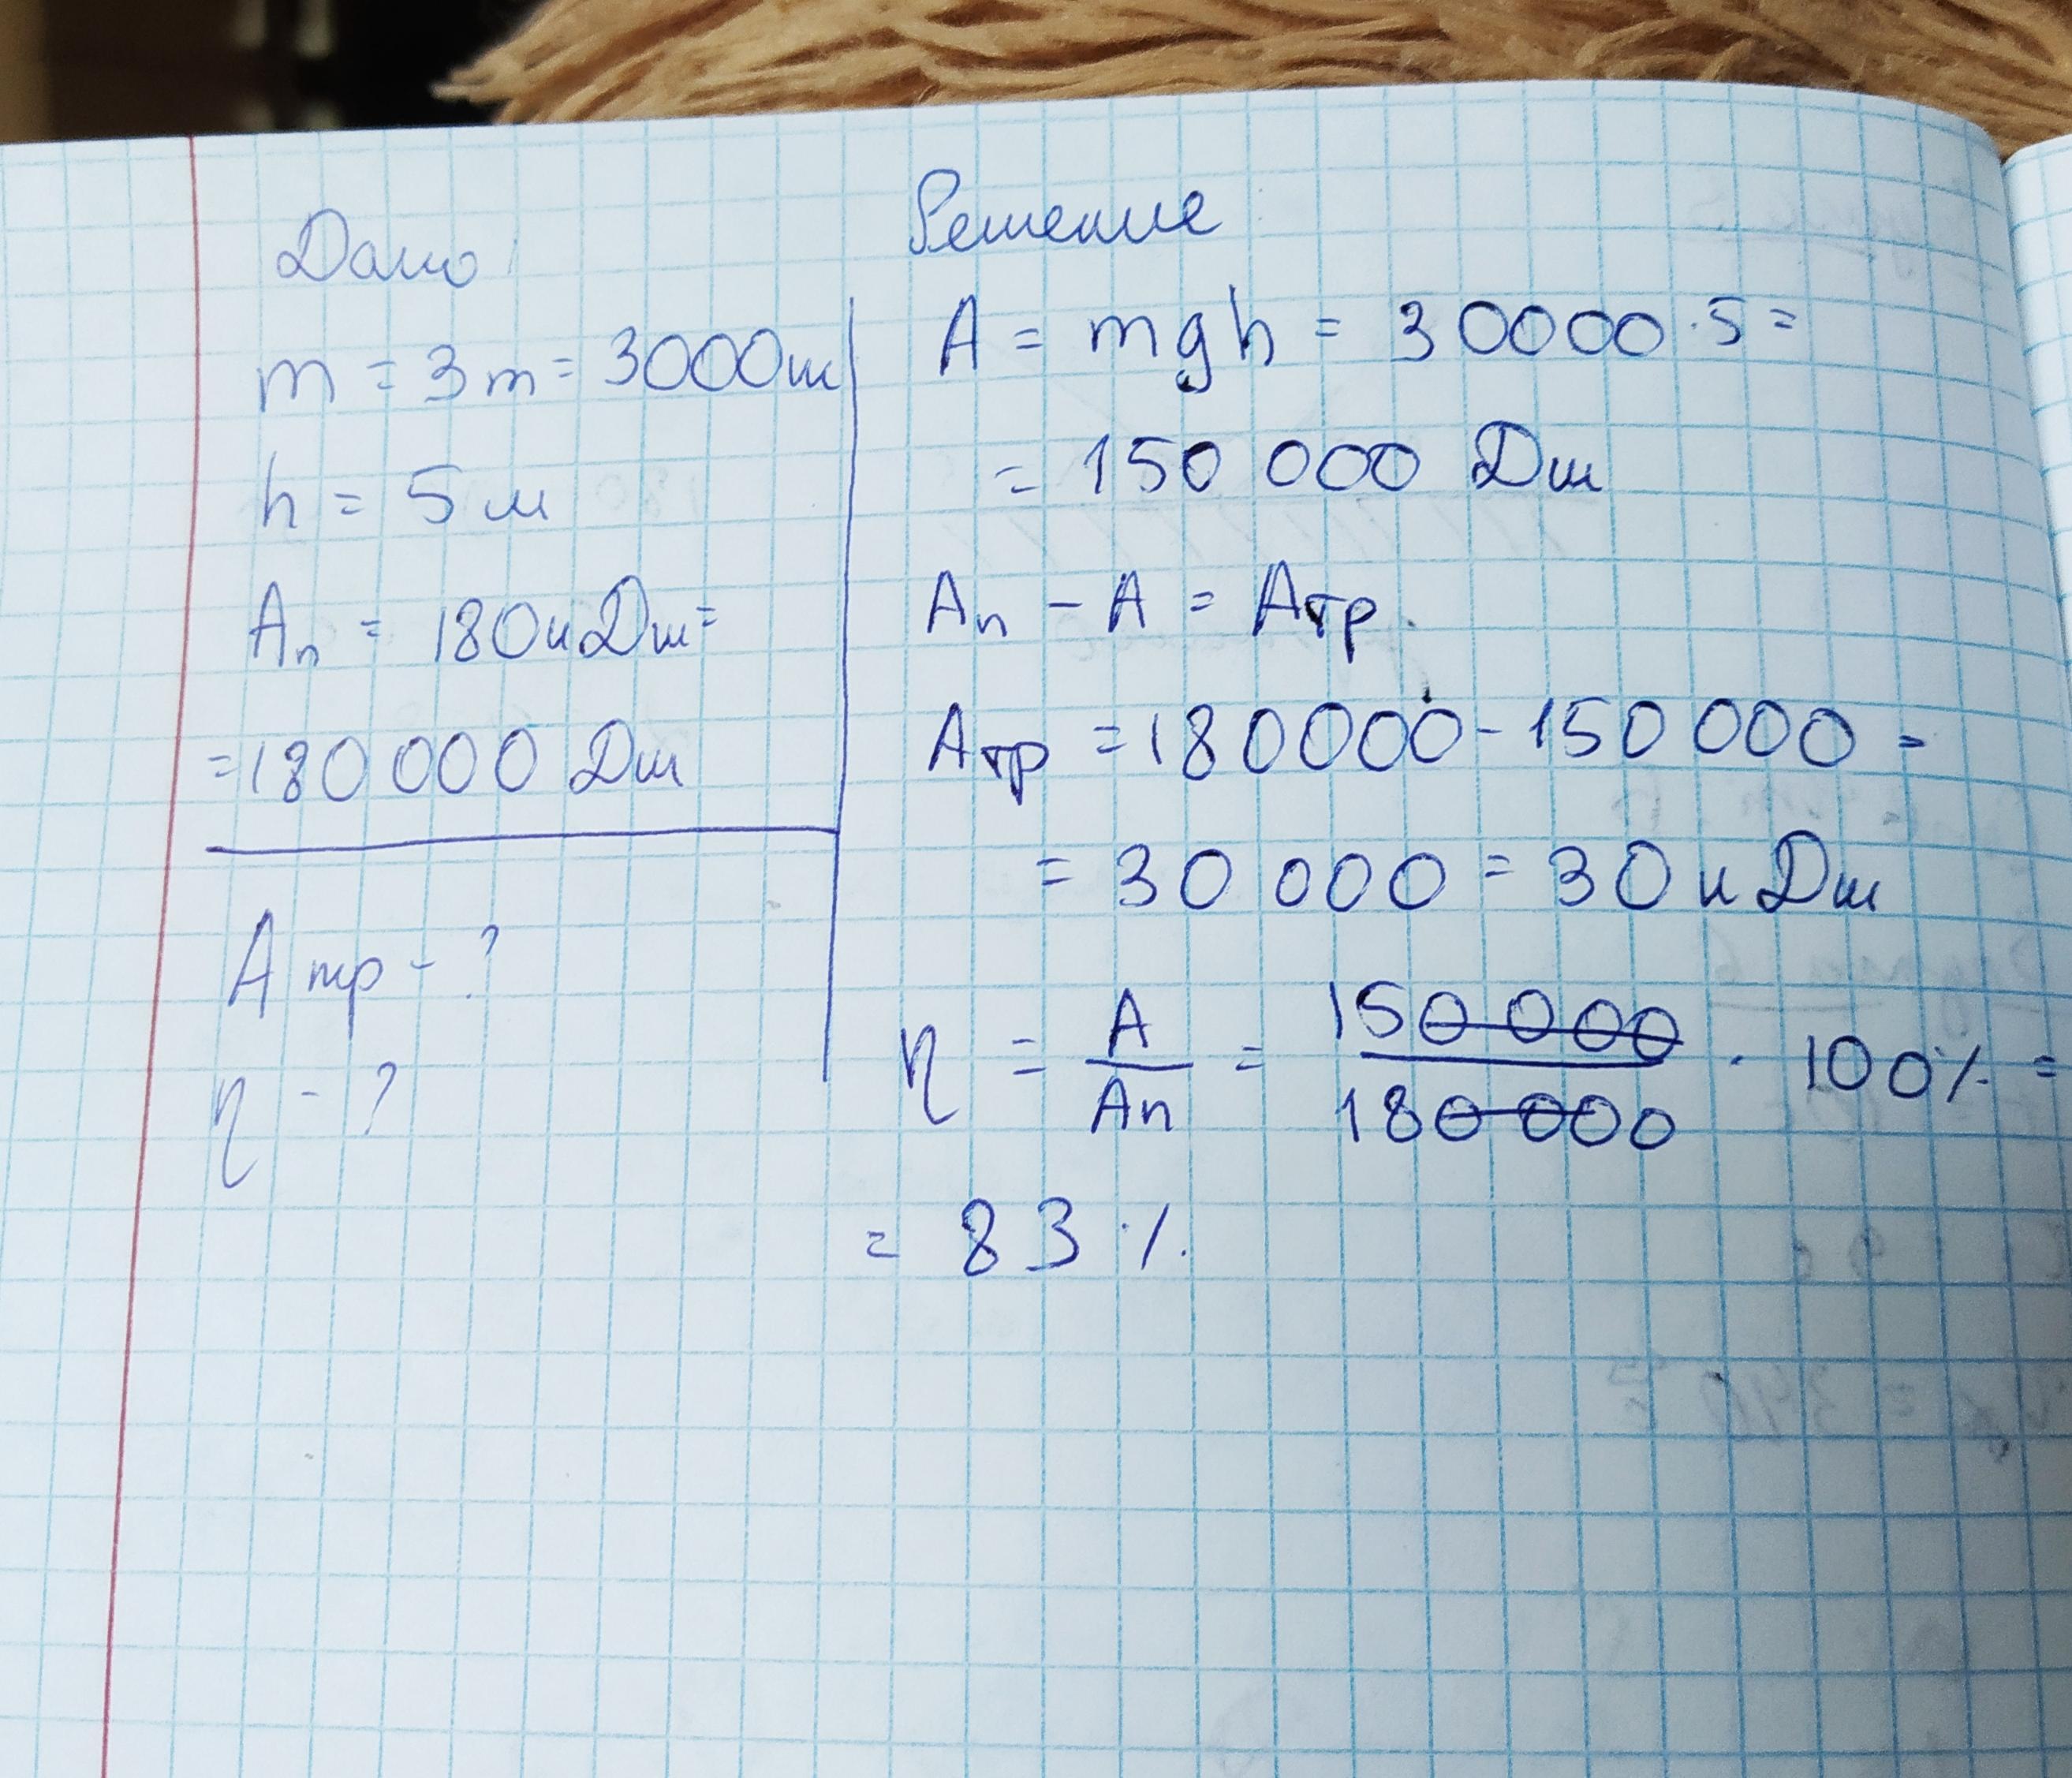 Дано
m = 3т = 3000кг
h = 5 м
Aп = 180кДж =
= 180 000 Дж
A тр - ?
η - ?
Решение
A = mgh = 30000 · 5 =
= 150 000 Дж
Aп - A = Aтр.
Aтр = 180000 - 150 000 =
= 30 000 = 30 кДж
η = A/Aп = 150 000/180 000 · 100% =
= 83 %